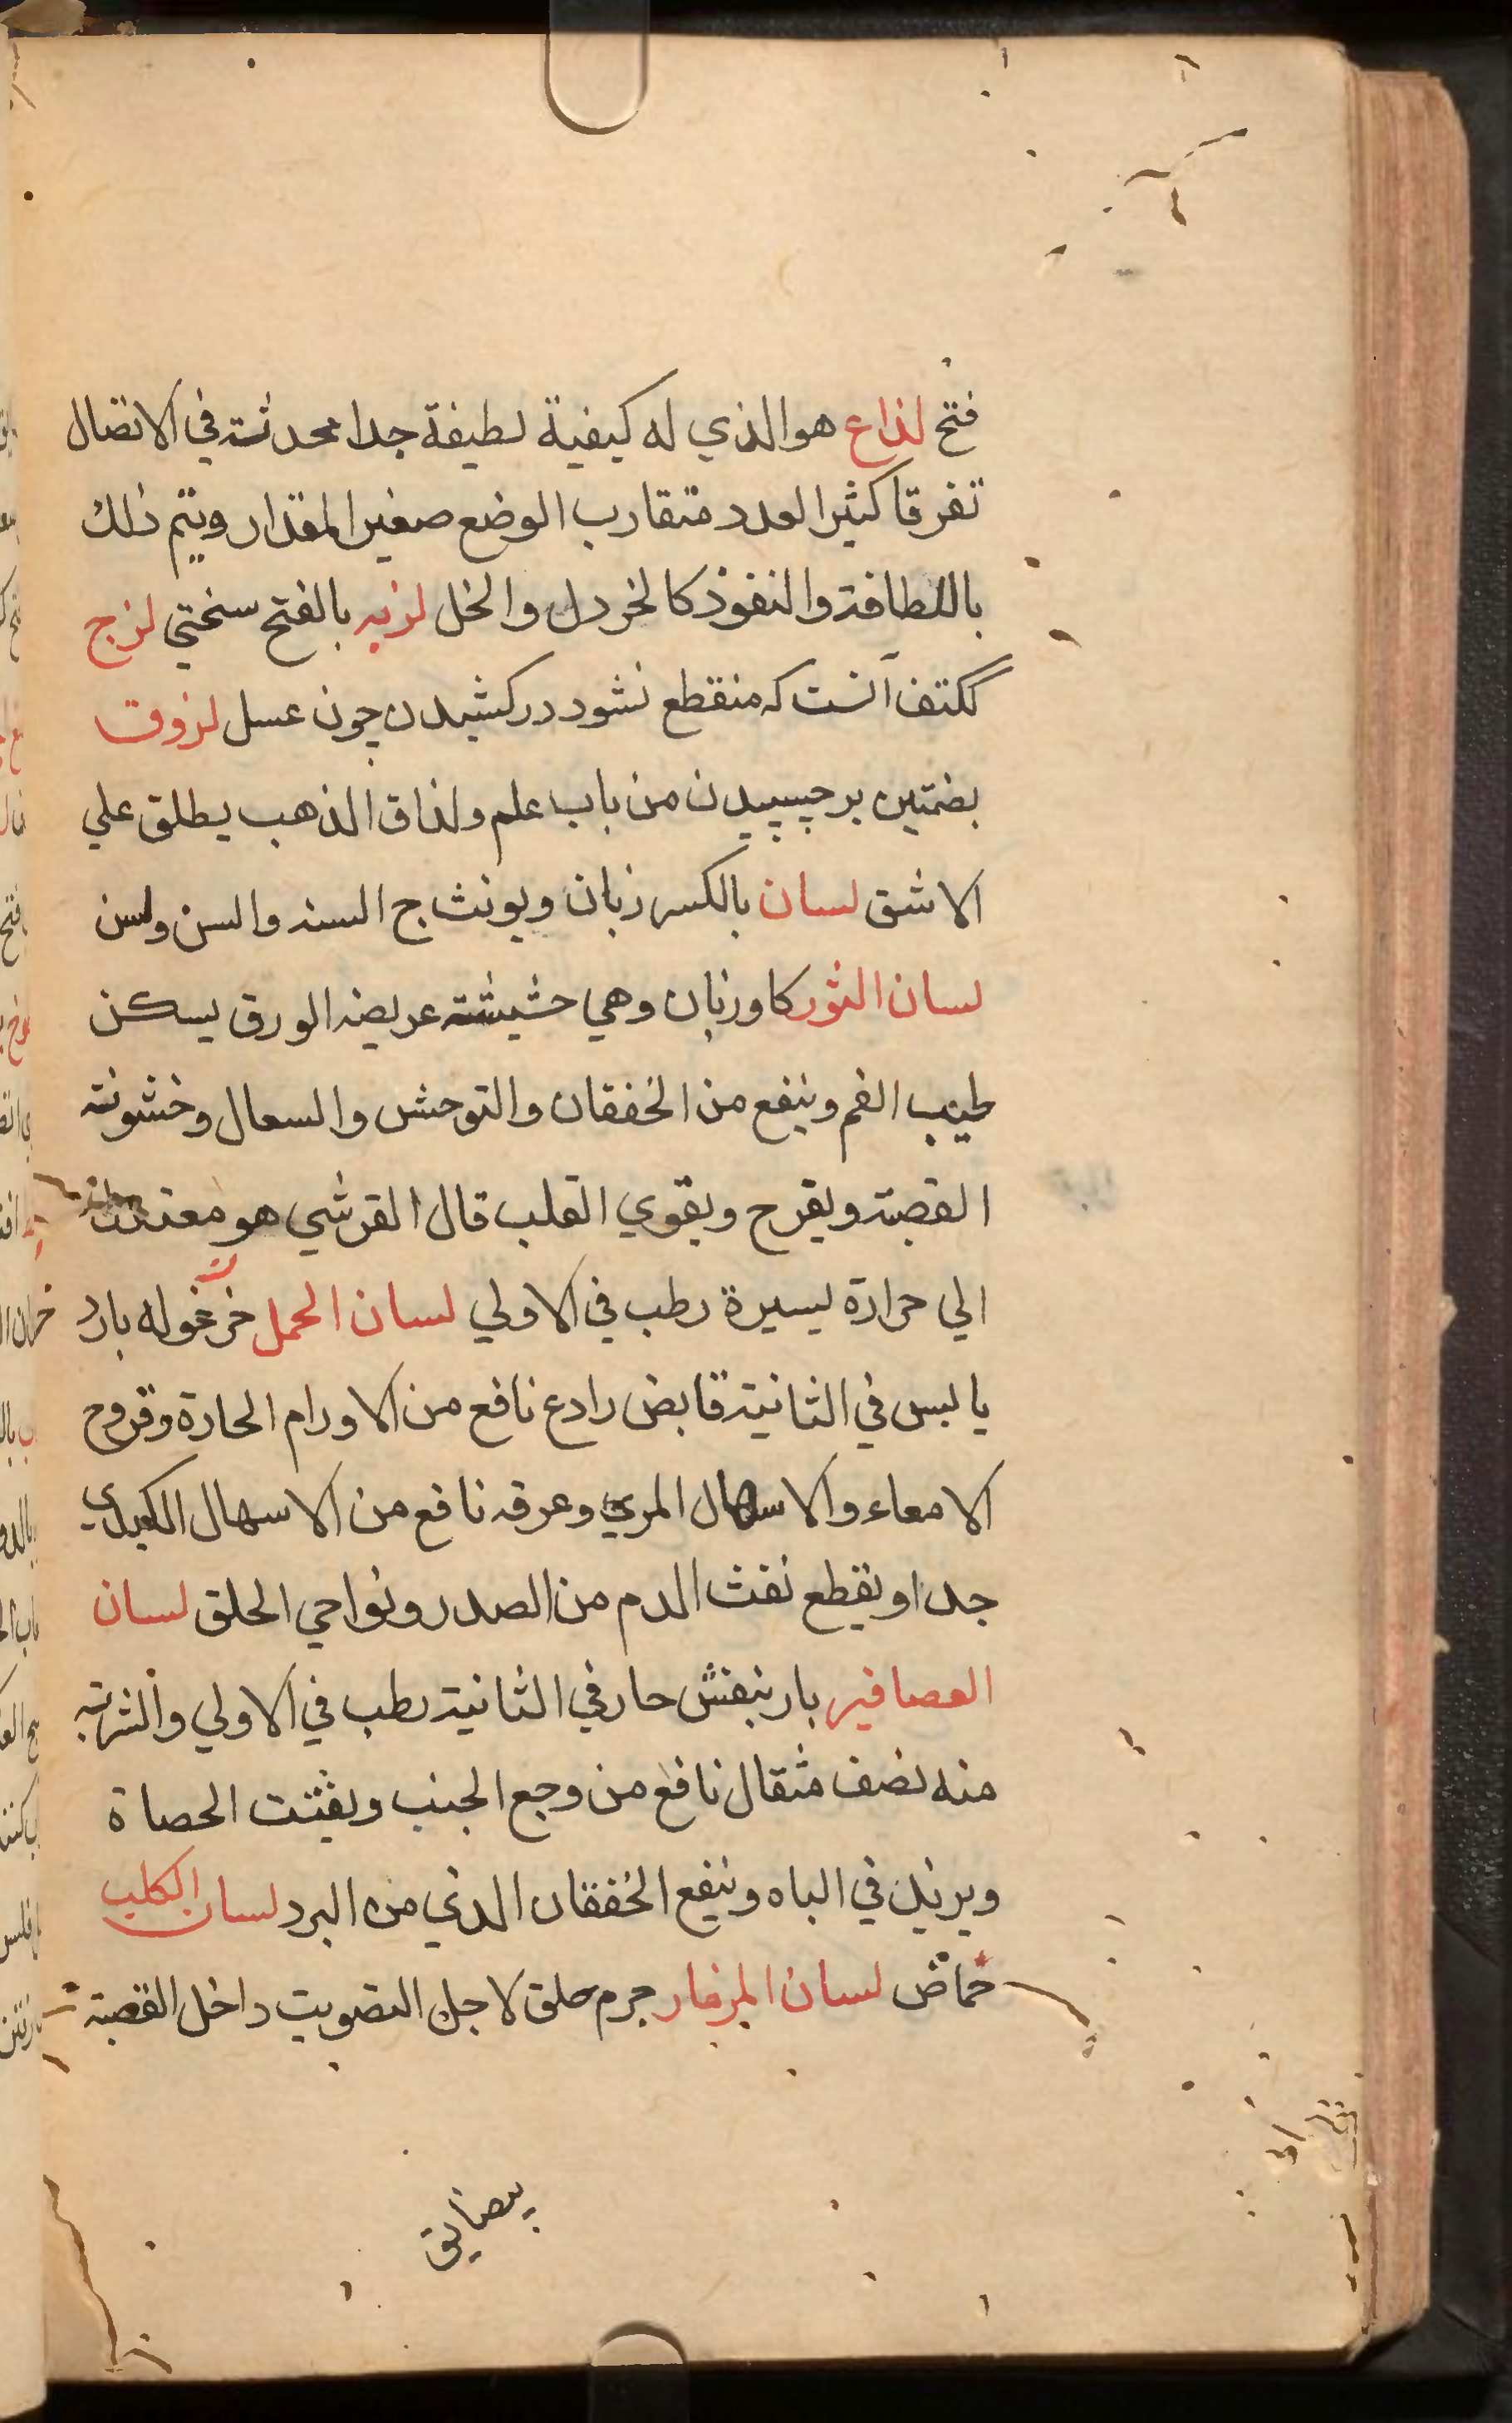 فتح لذاع هو الذي له كيفية لطيفة جدا محدثة في الاتصال
تفرقا كثير العدد متقارب الوضع صغير المقدار ويتم ذلك
باللطافة والنفوذ كالخردل والخل لزبه بالفتح سختي لزج
ككتف آنست كه منقطع نشود در كشيدن چون عسل لزوق
بضمتين بر چسپيدن من باب علم ولذاق الذهب يطلق علي
الاشق لسان بالكسر زبان ويونث ج السنه والسن ولسن
لسان الثور كاوزبان وهي حشيشة عريضه الورق يسكن
طيب الفم وينفع من الخفقان والتوحش والسعال وخشونة
القصبة ويفرح ويقوي القلب قال القرشي هو معتدل
الي حرارة يسيرة رطب في الاولي لسان الحمل خرغوله بارد
يابس في الثانية قابض رادع نافع من الاورام الحارة وقروح
الامعاء والاسهال المري وعرقه نافع من الاسهال الكبدي
جدا ويقطع نفث الدم من الصدر ونواحي الحلق لسان
العصافير بار بنفش حار في الثانية رطب في الاولي والشربة
منه نصف مثقال نافع من وجع الجنب ويفتت الحصاة
ويزيل في الباه وينفع الخفقان الذي من البرد لسان الكلب
حماض لسان المزمار جرم معلق لاجل التصويت داخل القصبة